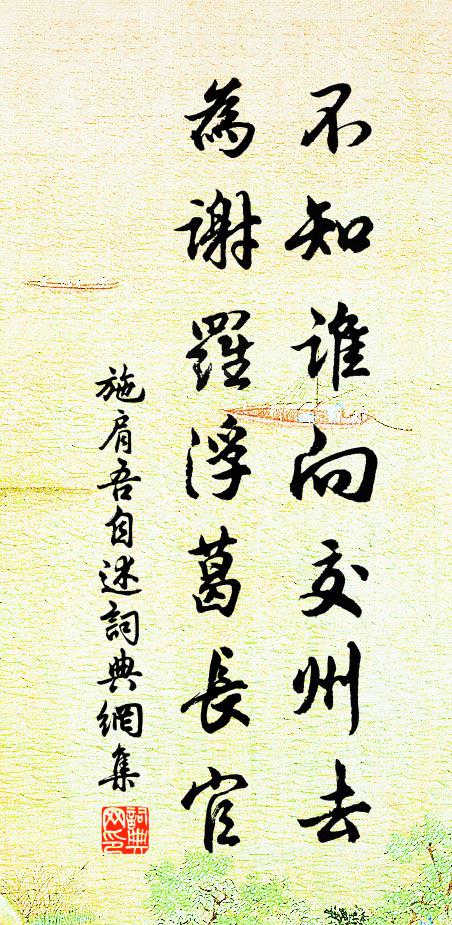 不知誰向交州去
為謝羅浮葛長官
施肩吾自述詞典網集
詞典網印